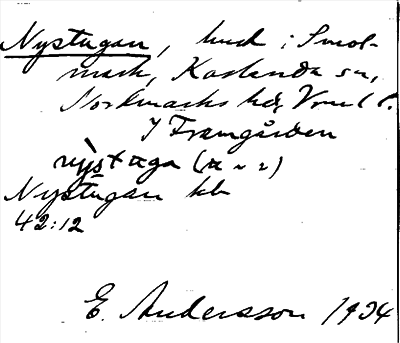 Nystugan, hus i Smol-
mark, Karlanda sn,
Nordmarks hd, Vrml l.
I Framgården
Nystugan kb
42:12
E. Andersson 1934